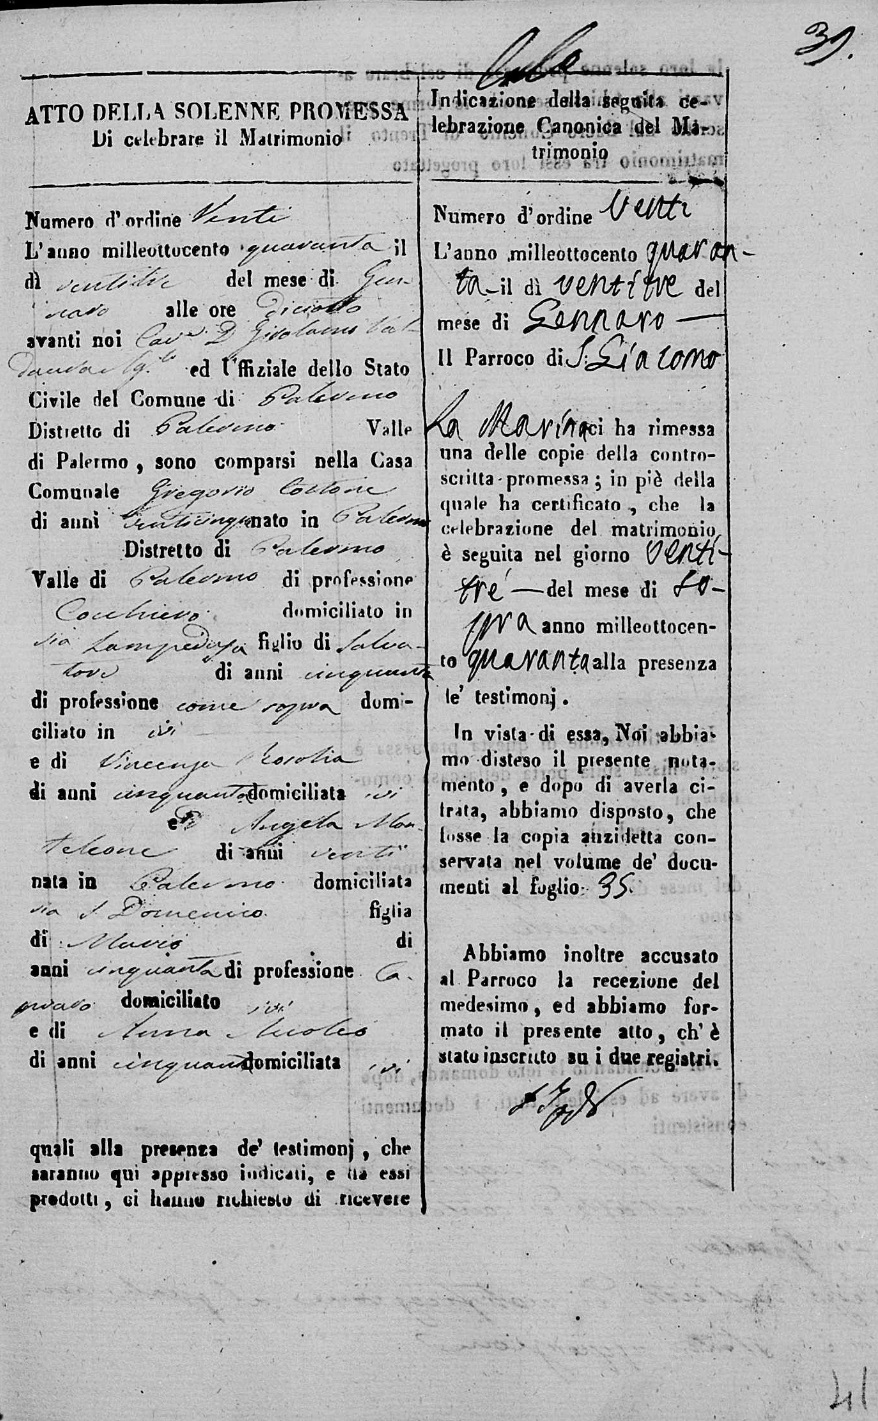 39.
ATTO DELLA SOLENNE PROMESSA
Di celebrare il Matrimonio
Numero d'ordine Venti
L'anno milleottocento quaranta il
dì ventitre del mese di Gen-
naro alle ore diciotto
avanti noi Cav.r D. Girolamo
ed Uffiziale dello Stato
Civile del Comune di Palermo
Distretto di Palermo Valle
di Palermo, sono comparsi nella Casa
Comunale Gregorio Cottone
di anni venticinque nato in Palermo
Distretto di Palermo
Valle di Palermo di professione
Cocchiero domiciliato in
via Lampedusa figlio di Salva-
tore di anni cinquanta
di professione come sopra domi-
ciliato in ivi
e di Vincenza Rosolia
di anni cinquanta domiciliata ivi
ed Angela Mon-
teleone di anni venti
nata in Palermo domiciliata
via S Domenico figlia
di Mario di
anni cinquanta di professione
domiciliato ivi
e di Anna
di anni cinquanta domiciliata ivi
quali alla presenza de' testimonj, che
saranno qui appresso indicati, e da essi
prodotti, ci hanno richiesto di ricevere
Indicazione della seguita ce-
lebrazione Canonica del Ma-
trimonio
Numero d'ordine Venti
L'anno milleottocento quaran-
ta il dì ventitre del
mese di Gennaro
Il Parroco di S. Giacomo
La Marina ci ha rimessa
una delle copie della contro-
scritta promessa; in piè della
quale ha certificato, che la
celebrazione del matrimonio
è seguita nel giorno venti-
tré del mese di so-
pra anno milleottocen-
to quaranta alla presenza
le' testimonj.
In vista di essa, Noi abbia-
mo disteso il presente nota-
mento, e dopo di averla ci-
frata, abbiamo disposto, che
fosse la copia anzidetta con-
servata nel volume de' docu-
menti al foglio 35.
Abbiamo inoltre accusato
al Parroco la recezione del
medesimo, ed abbiamo for-
mato il presente atto, ch' è
stato inscritto su i due registri.
41